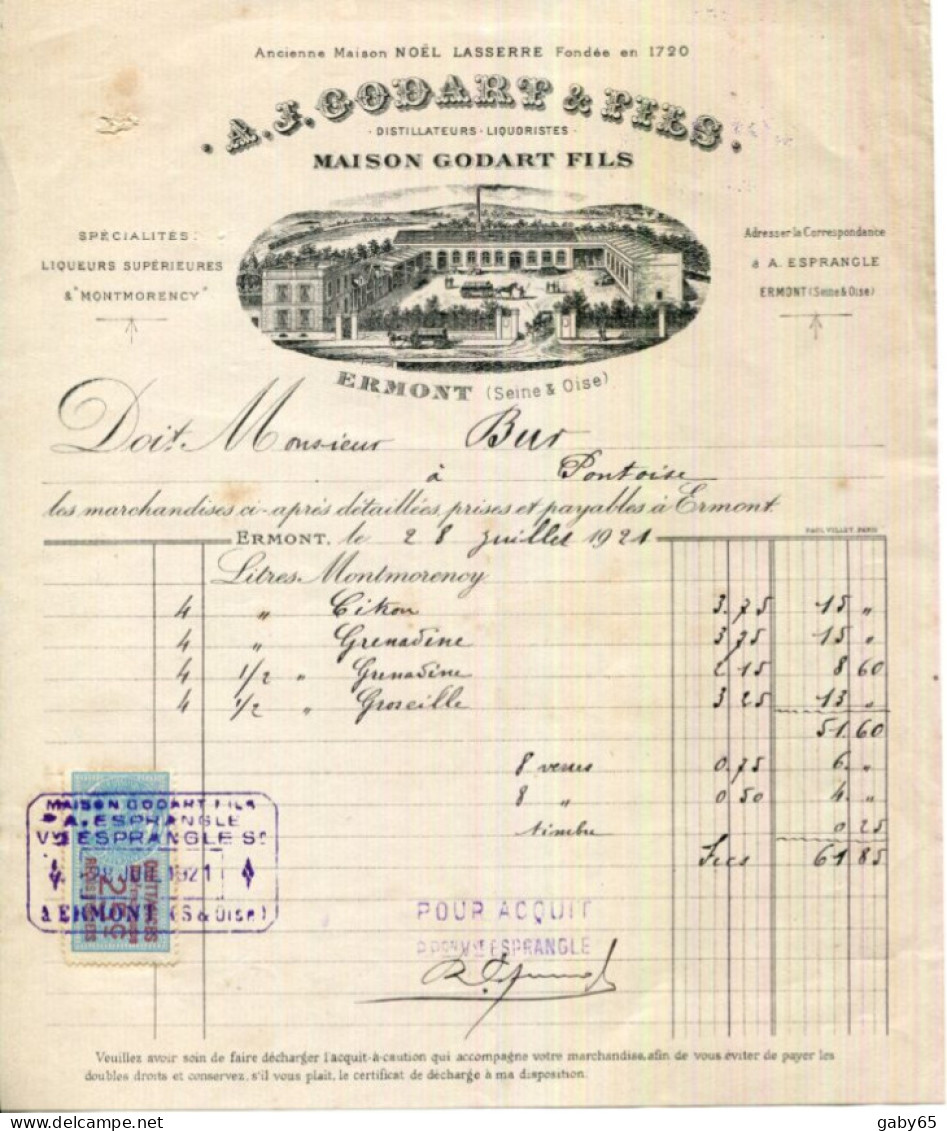 Ancienne Maison NOËL LASSERRE Fondée en 1720
A. J. GODART & FILS.
DISTILLATEURS - LIQUORISTES
MAISON GODART FILS
SPÉCIALITÉS:
LIQUEURS SUPÉRIEURES
& "MONTMORENCY"
Adresser la Correspondance
à A. ESPRANGLE
ERMONT (Seine & Oise)
ERMONT (Seine & Oise)
Doit Monsieur Bur
à Pontoise
les marchandises ci-après détaillées, prises et payables à Ermont.
PAUL VOLLET, PARIS
ERMONT, le 28 Juillet 1921
Litres Montmorency
4 " Citron 3.75 15 "
4 " Grenadine 3 75 15 "
4 1/2 " Grenadine 2 15 8 60
4 1/2 " Groseille 3 25 13 "
51.60
8 verres 0.75 6. "
8 " 0 50 4. "
timbre 0 25
Fres 61 85
MAISON GODART FILS
A. ESPRANGLE
Vve ESPRANGLE Sr
28 JUIL 1921
à ERMONT (S & Oise)
QUITTANCES
25c
POUR ACQUIT
Vve ESPRANGLE
Veuillez avoir soin de faire décharger l'acquit-à-caution qui accompagne votre marchandise, afin de vous éviter de payer les
doubles droits et conservez, s'il vous plait, le certificat de décharge à ma disposition.
delcampe.net
gaby65